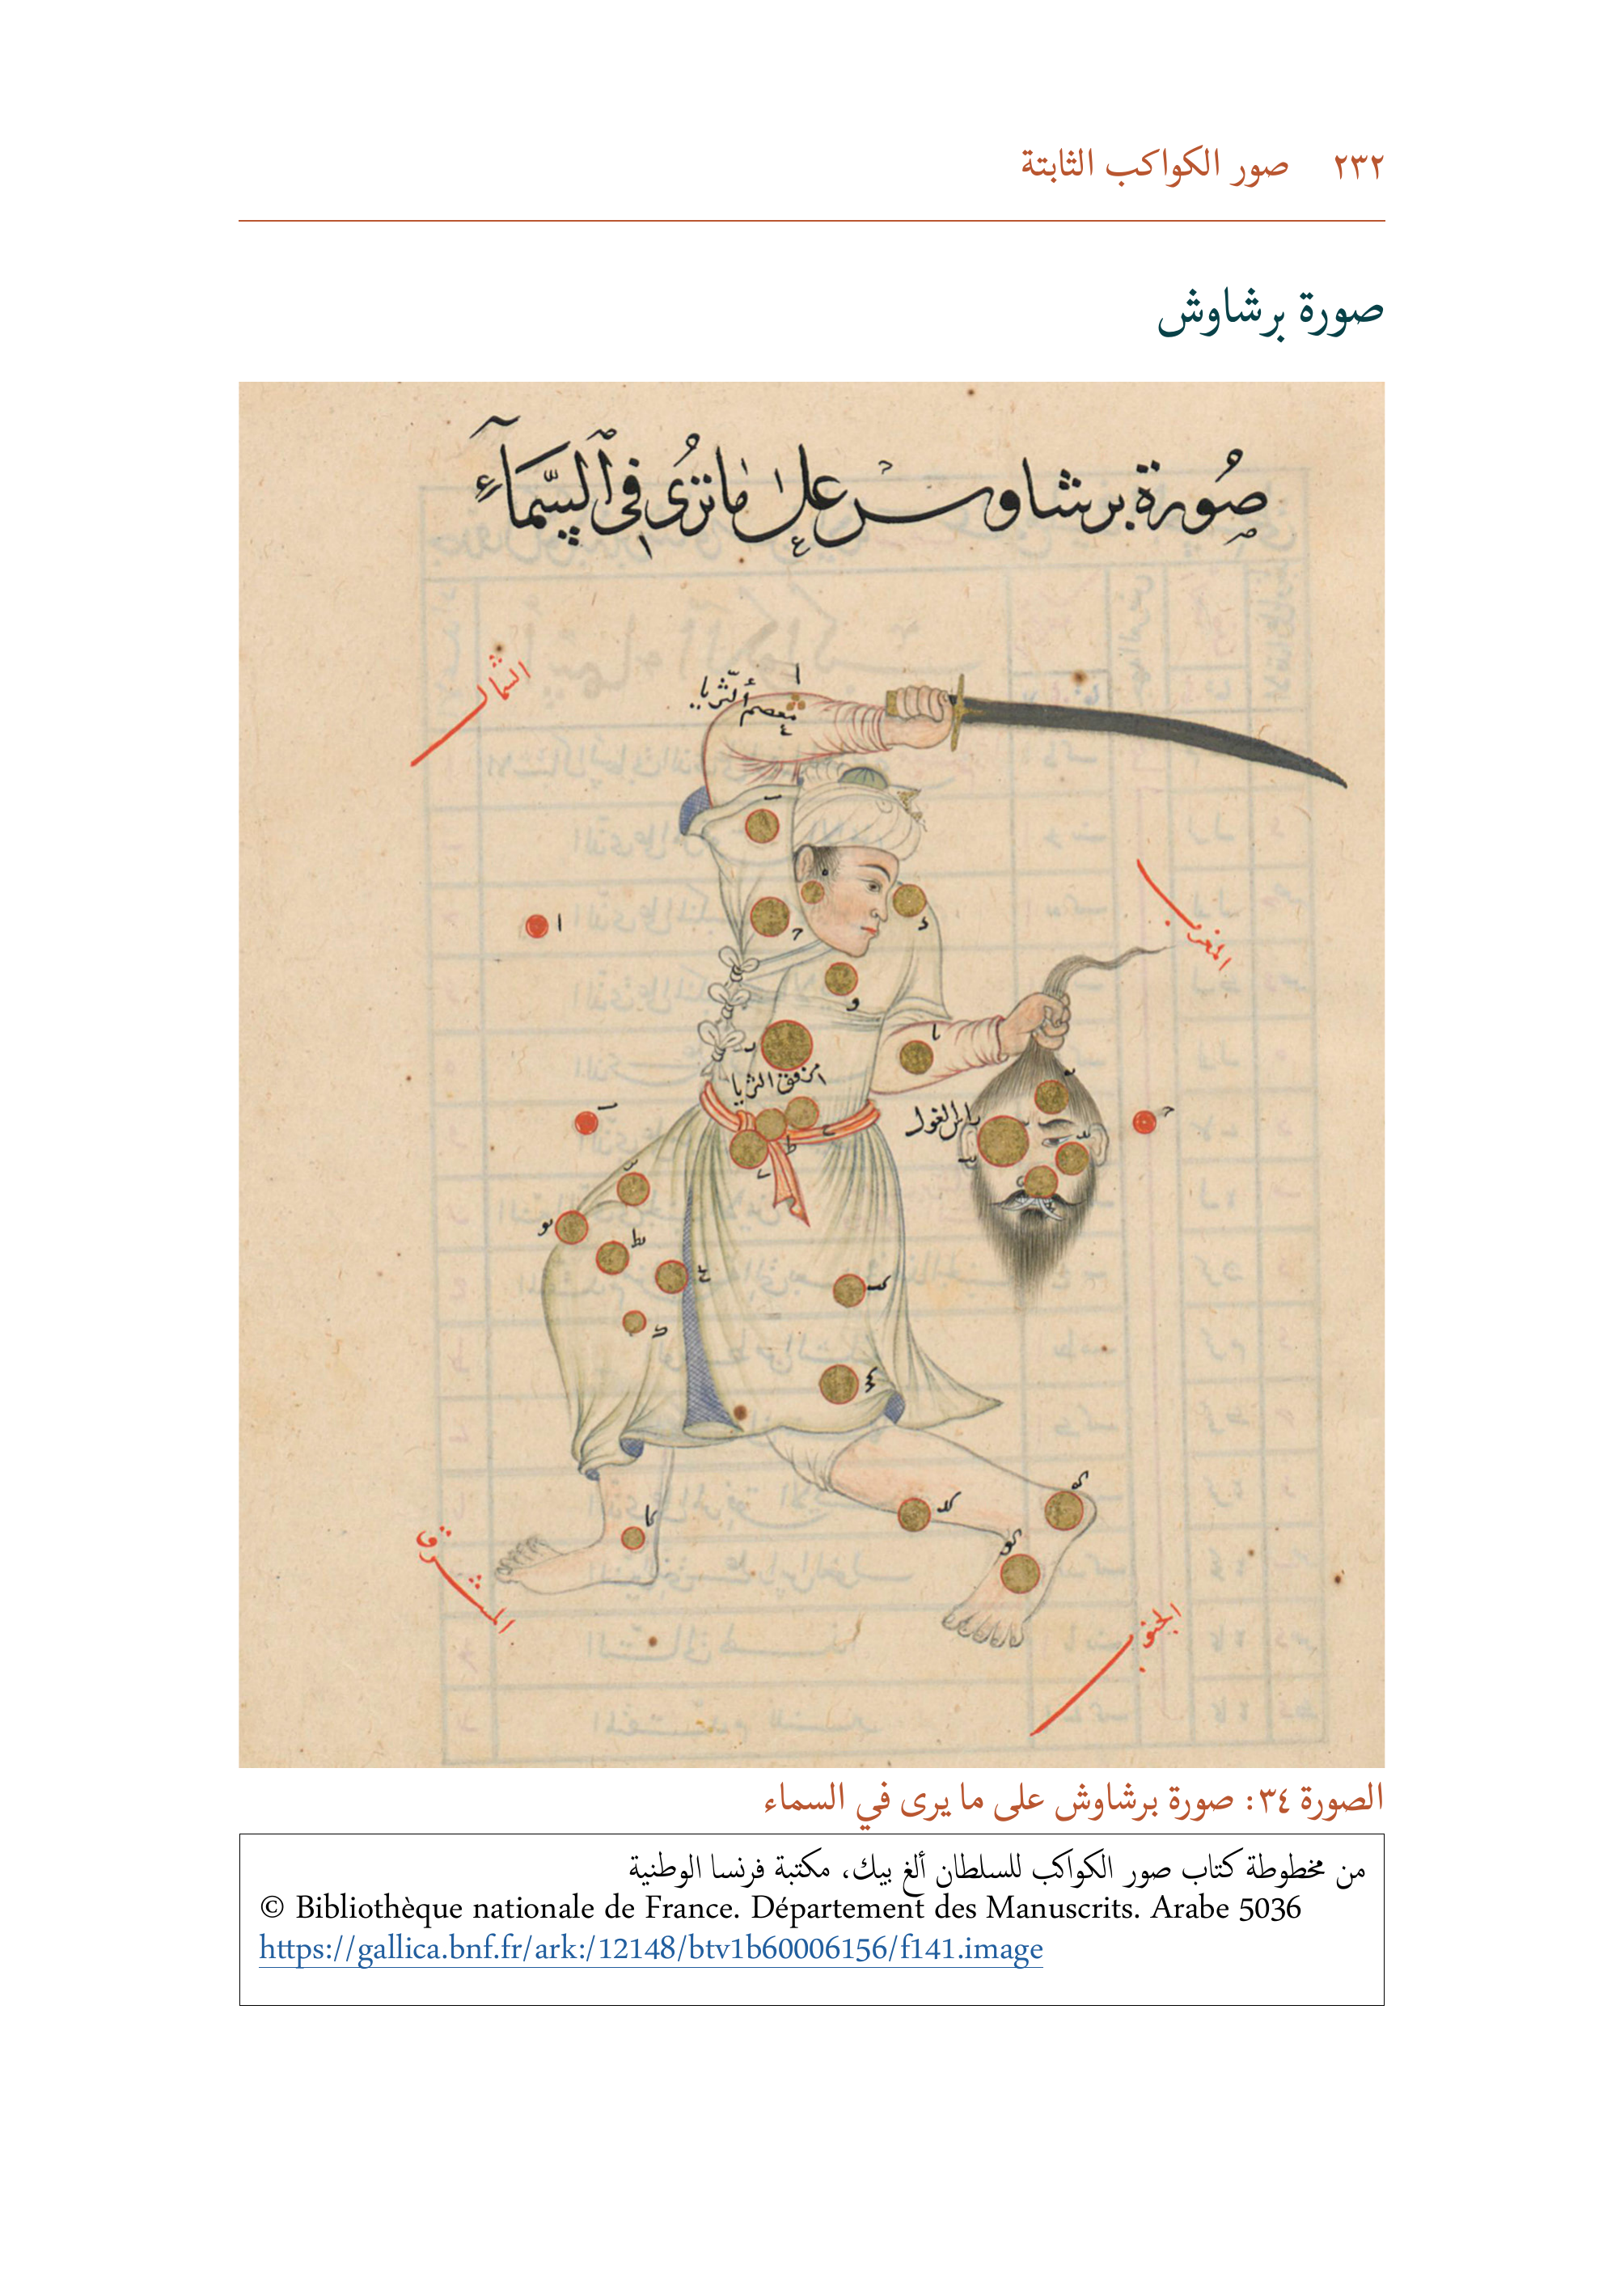 ٢٣٢ صور الكواكب الثابتة
صورة برشاوش
صُورة برشاوس على ما تُرى في السَّمَاءِ
الشمال
معصم الثريا
ا
المغرب
مرفق الثريا
راس الغول
المشرق
الجنوب
الصورة ٣٤: صورة برشاوش على ما يرى في السماء
من مخطوطة كتاب صور الكواكب للسلطان ألغ بيك، مكتبة فرنسا الوطنية
© Bibliothèque nationale de France. Département des Manuscrits. Arabe 5036
https://gallica.bnf.fr/ark:/12148/btv1b60006156/f141.image